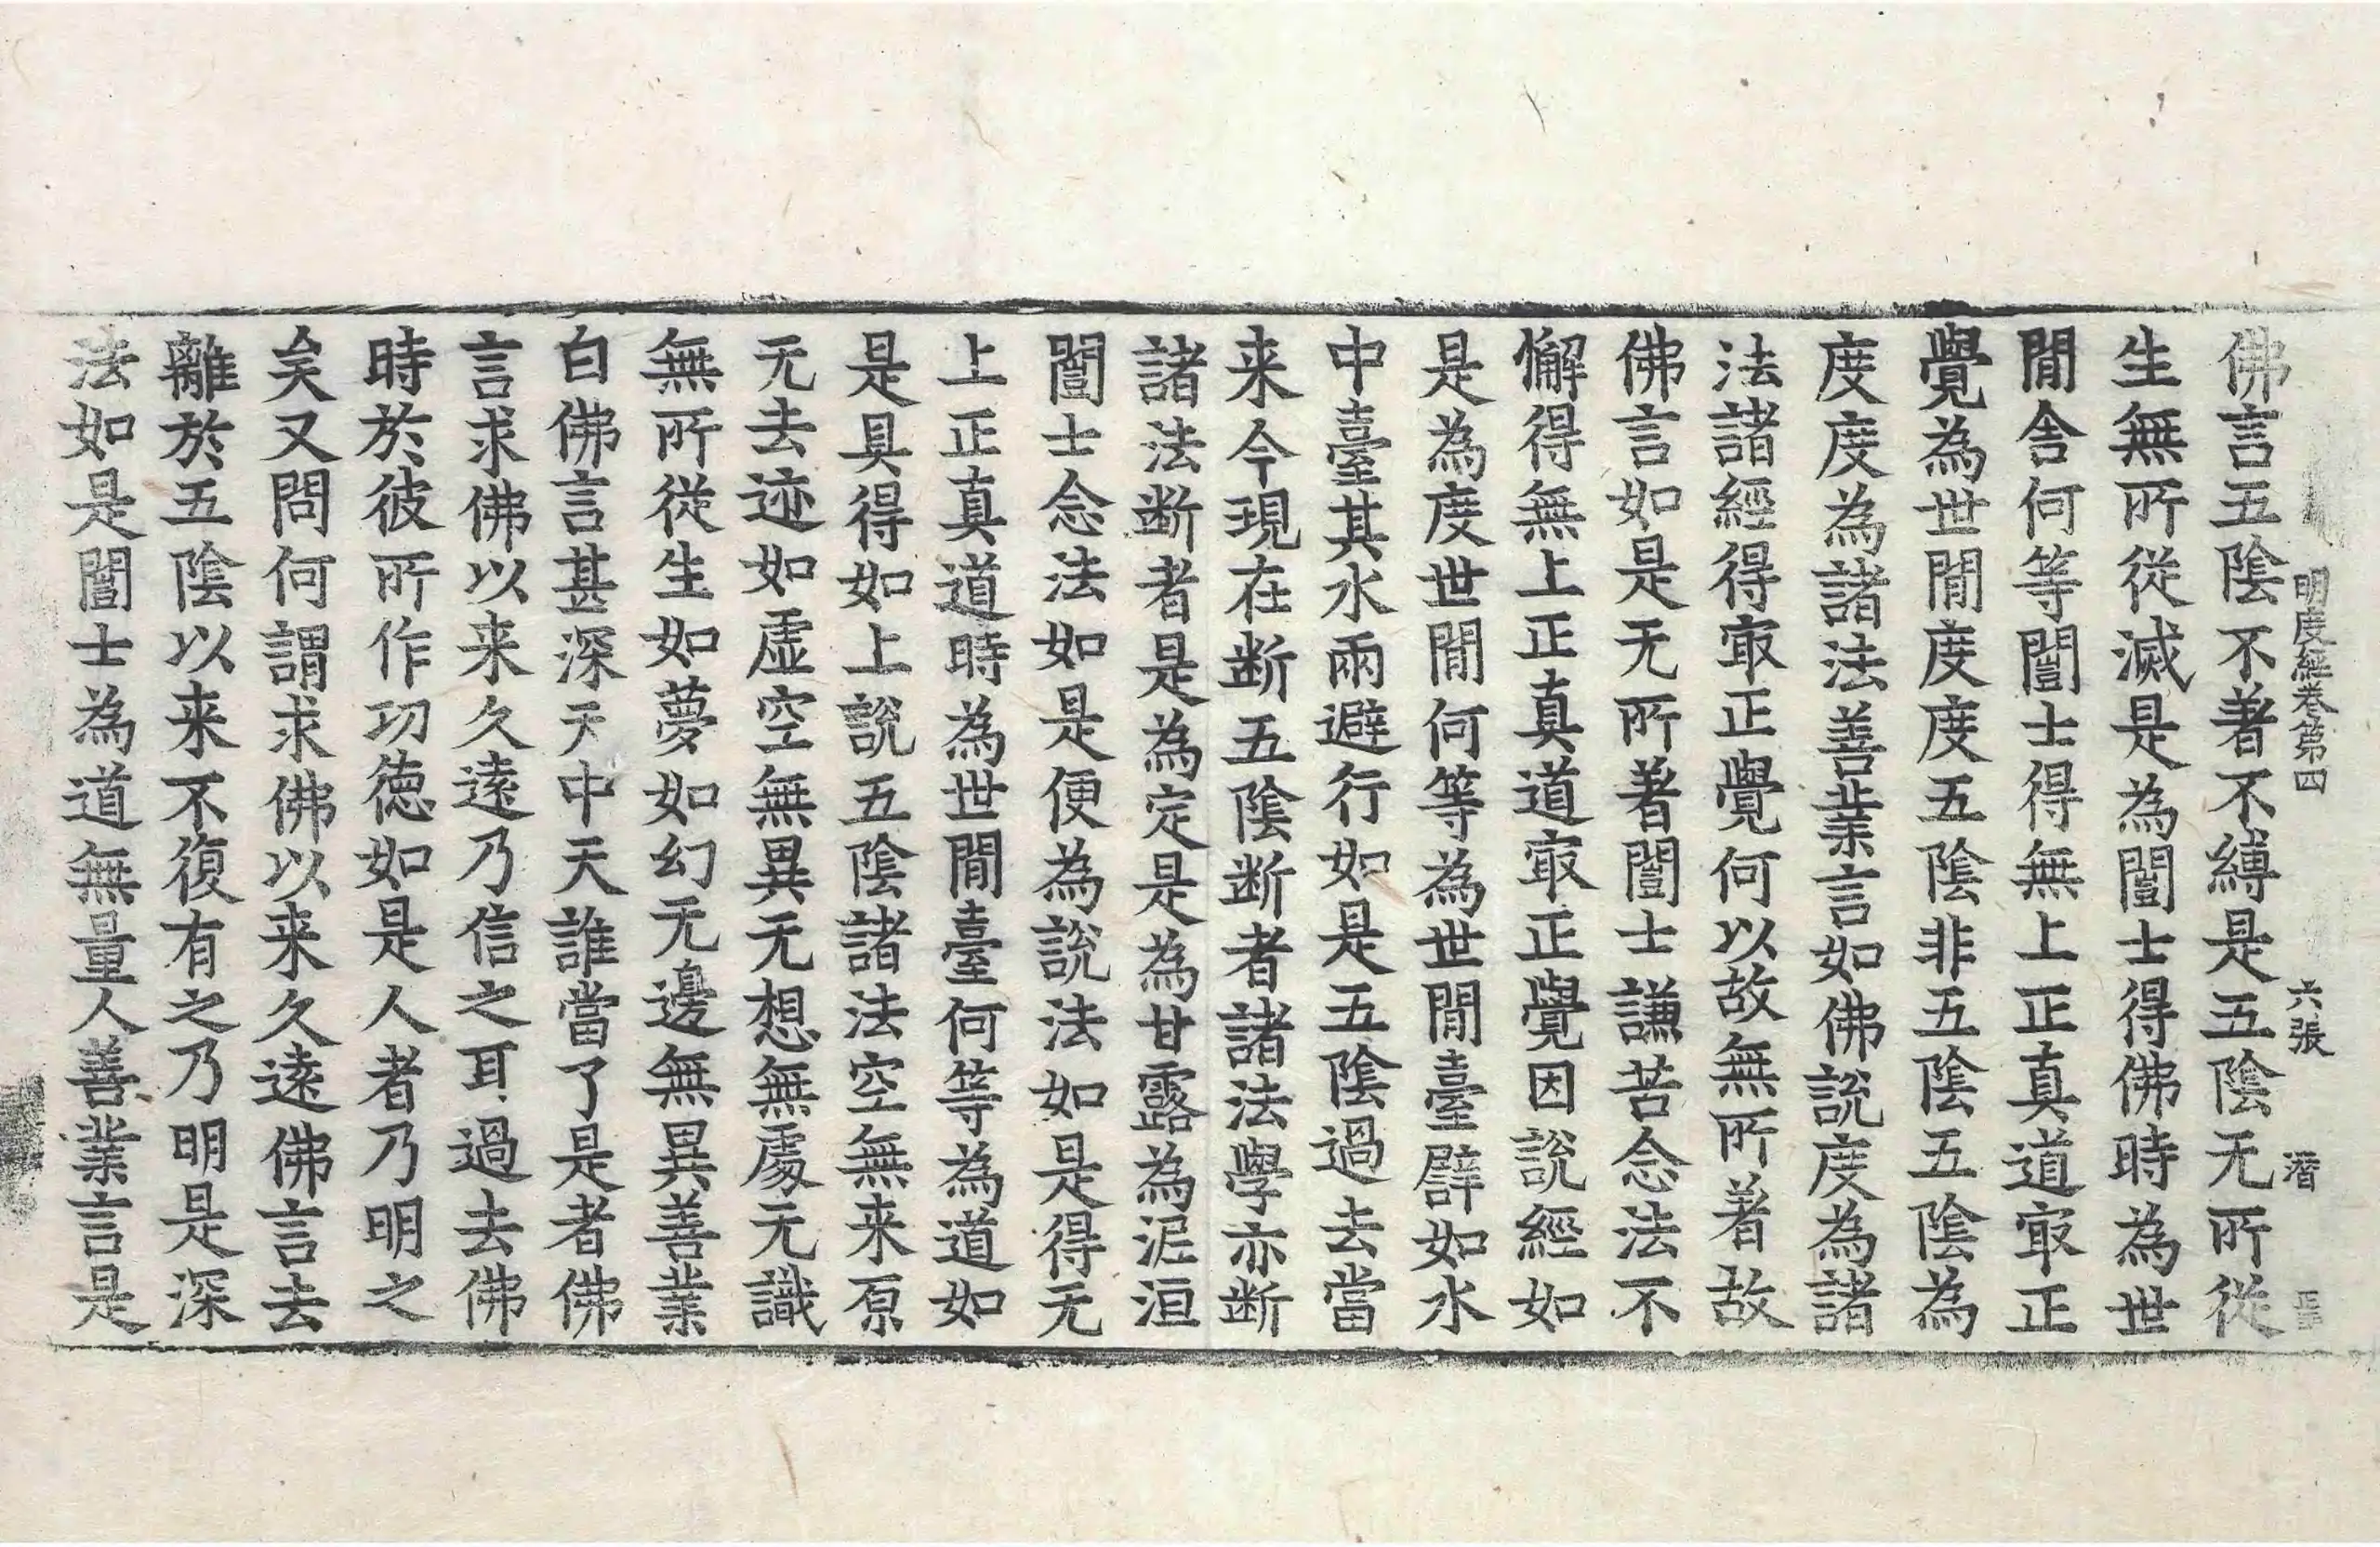 明度經卷第四 六張 潛
佛言五陰不著不縛是五陰无所從
生無所從滅是為闓士得佛時為世
閒舍何等闓士得無上正真道㝡正
覺為世閒度度五陰非五陰五陰為
度度為諸法善業言如佛說度為諸
法諸經得㝡正覺何以故無所著故
佛言如是无所著闓士謙苦念法不
懈得無上正真道㝡正覺因說經如
是為度世閒何等為世閒臺譬如水
中臺其水兩避行如是五陰過去當
来今現在断五陰断者諸法學亦断
諸法断者是為定是為甘露為泥洹
闓士念法如是便為說法如是得无
上正真道時為世閒臺何等為道如
是具得如上說五陰諸法空無来原
无去迹如虛空無異无想無處无識
無所從生如夢如幻无邊無異善業
白佛言甚深天中天誰當了是者佛
言求佛以来久遠乃信之耳過去佛
時於彼所作功德如是人者乃明之
矣又問何謂求佛以来久遠佛言去
離於五陰以来不復有之乃明是深
法如是闓士為道無量人善業言是